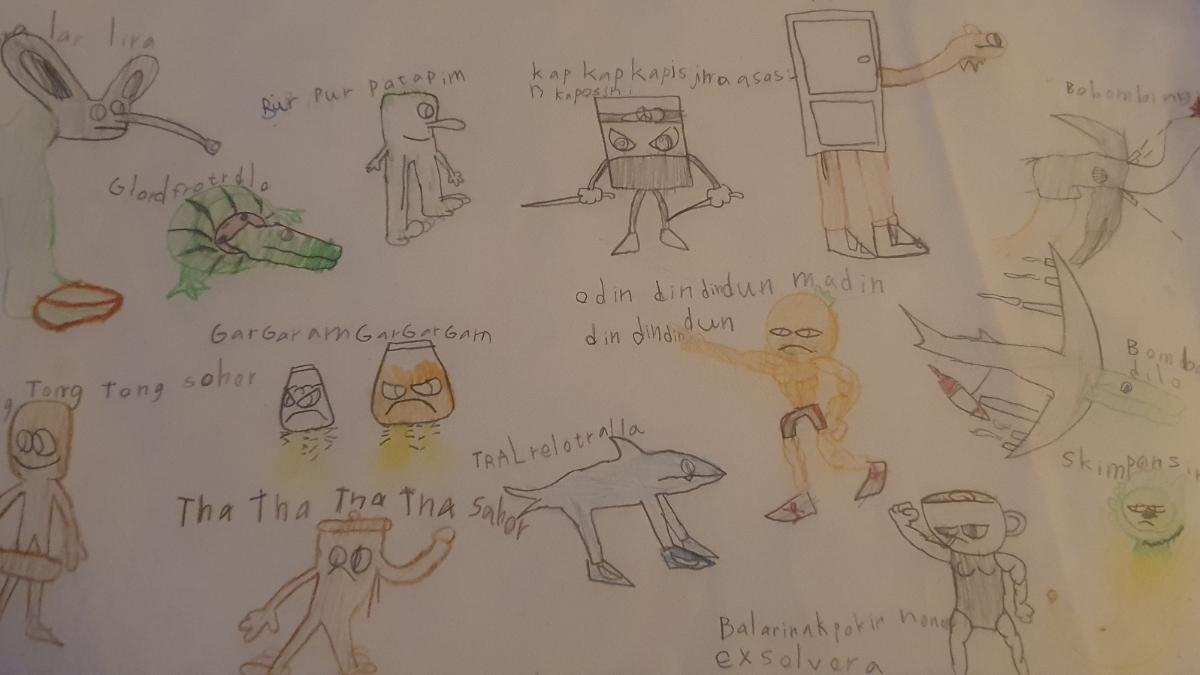 lar lira
Bur pur patapim
kap kap kapis jira asasi
n kaposini
Bobombin
Glordfrotrdlo
odin din dindun madin
din dindin dun
GarGaramGarGarGam
Tong Tong sohor
Bomb
dilo
TRALrelotralla
skimpans
Tha Tha Tha Tha Sahor
Balarinakpokir nono
exsolvora